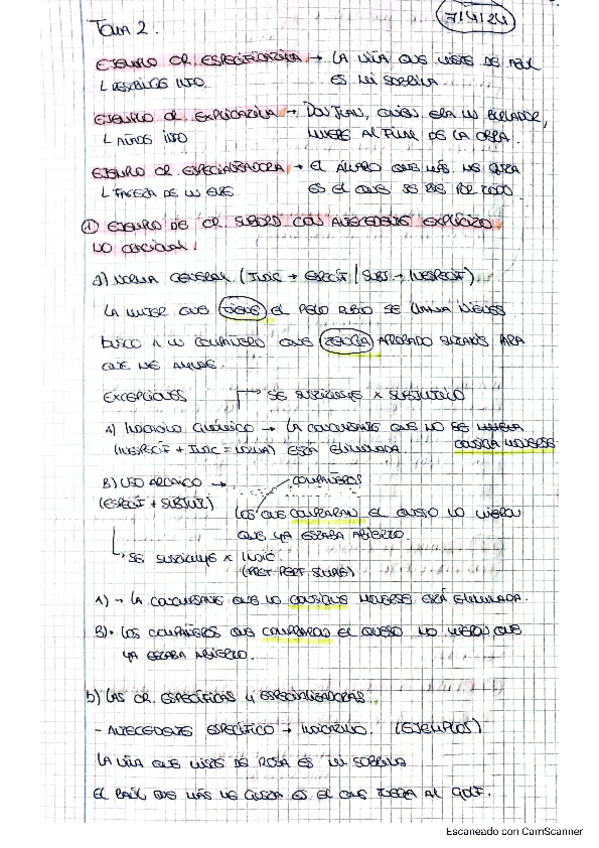 TEMA 2.
7/4/24
EJEMPLO OR ESPECIFICATIVA → LA NIÑA QUE VISTE DE AZUL
ES MI SOBRINA.
EJEMPLO OR EXPLICATIVA → DON JUAN, QUIEN ERA UN BURLADOR,
MUERE AL FINAL DE LA OBRA.
└ AÑADE INFO
EJEMPLO OR ESPECIALIZADORA → EL ÁLVARO QUE MÁS ME GUSTA
ES EL QUE SE RÍE POR TODO.
① EJEMPLO DE OR SUBORD CON ANTECEDENTE EXPLÍCITO
a) NORMA GENERAL (INDIC → ESPECÍF / SUBJ → INESPECÍF)
LA MUJER QUE TIENE EL PELO RUBIO SE LLAMA NIEVES
BUSCO A UN COMPAÑERO QUE TENGA APROBADO SINTAXIS PARA
QUE ME AYUDE.
EXCEPCIONES SE SUSTITUYE X SUBJUNTIVO
A) INDICATIVO GENÉRICO → LA CONCURSANTE QUE NO SE
(INESPECÍF + INDIC = NORMA) ESTÁ ELIMINADA CONSIGA MOVERSE
B) USO ARCAICO → COMPAÑEROS
(ESPECÍF + SUBJUNT)
LOS QUE COMPRARAN EL QUESO NO VIERON
QUE YA ESTABA ABIERTO.
└→ SE SUSTITUYE X INDIC.
(PRET PERF SIMPLE)
A) → LA CONCURSANTE QUE NO CONSIGUE MOVERSE ESTÁ ELIMINADA.
B) • LOS COMPAÑEROS QUE COMPRARON EL QUESO NO VIERON QUE
YA ESTABA ABIERTO.
b) LAS OR. ESPECÍFICAS Y ESPECIALIZADORAS.
- ANTECEDENTE ESPECÍFICO → INDICATIVO. (EJEMPLOS)
LA NIÑA QUE VISTE DE ROSA ES MI SOBRINA
EL RAÚL QUE MÁS ME GUSTA ES EL QUE JUEGA AL GOLF.
Escaneado con CamScanner